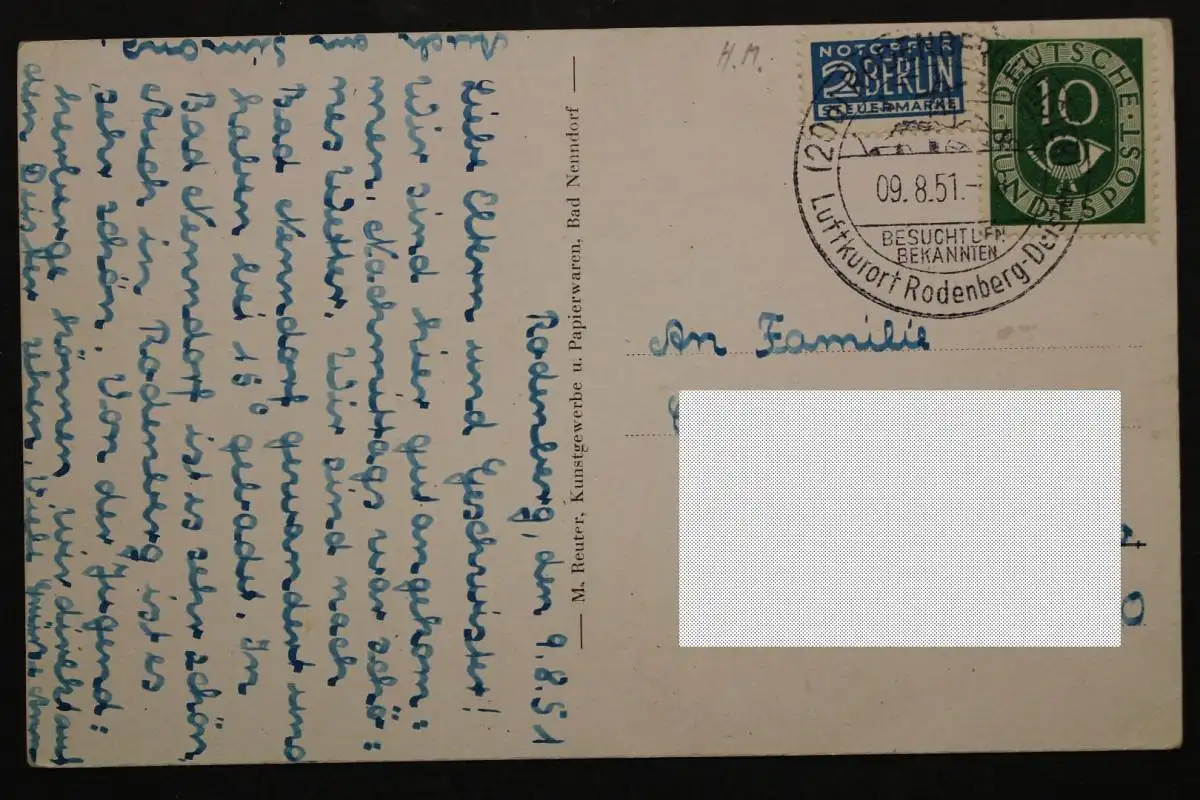 Rodenberg, den 9.8.51
Liebe Eltern und Geschwister!
Wir sind hier gut angekom=
men. Nachmittags war schö=
nes Wetter. Wir sind nach
Bad Nenndorf gewandert und
haben bei 15° gebadet. In
Bad Nenndorf ist es sehr schön,
Auch in Rodenberg ist es
sehr schön. Von der Jugend=
herberge können wir direkt auf
den Deister sehen. Viele Grüße
M. Reuter, Kunstgewerbe u. Papierwaren, Bad Nenndorf
H.M.
NOTOPFER
2 BERLIN
STEUERMARKE
DEUTSCHE BUNDESPOST
10
09.8.51.-
BESUCHT DEN
BEKANNTEN
Luftkurort Rodenberg-Deister
An Familie